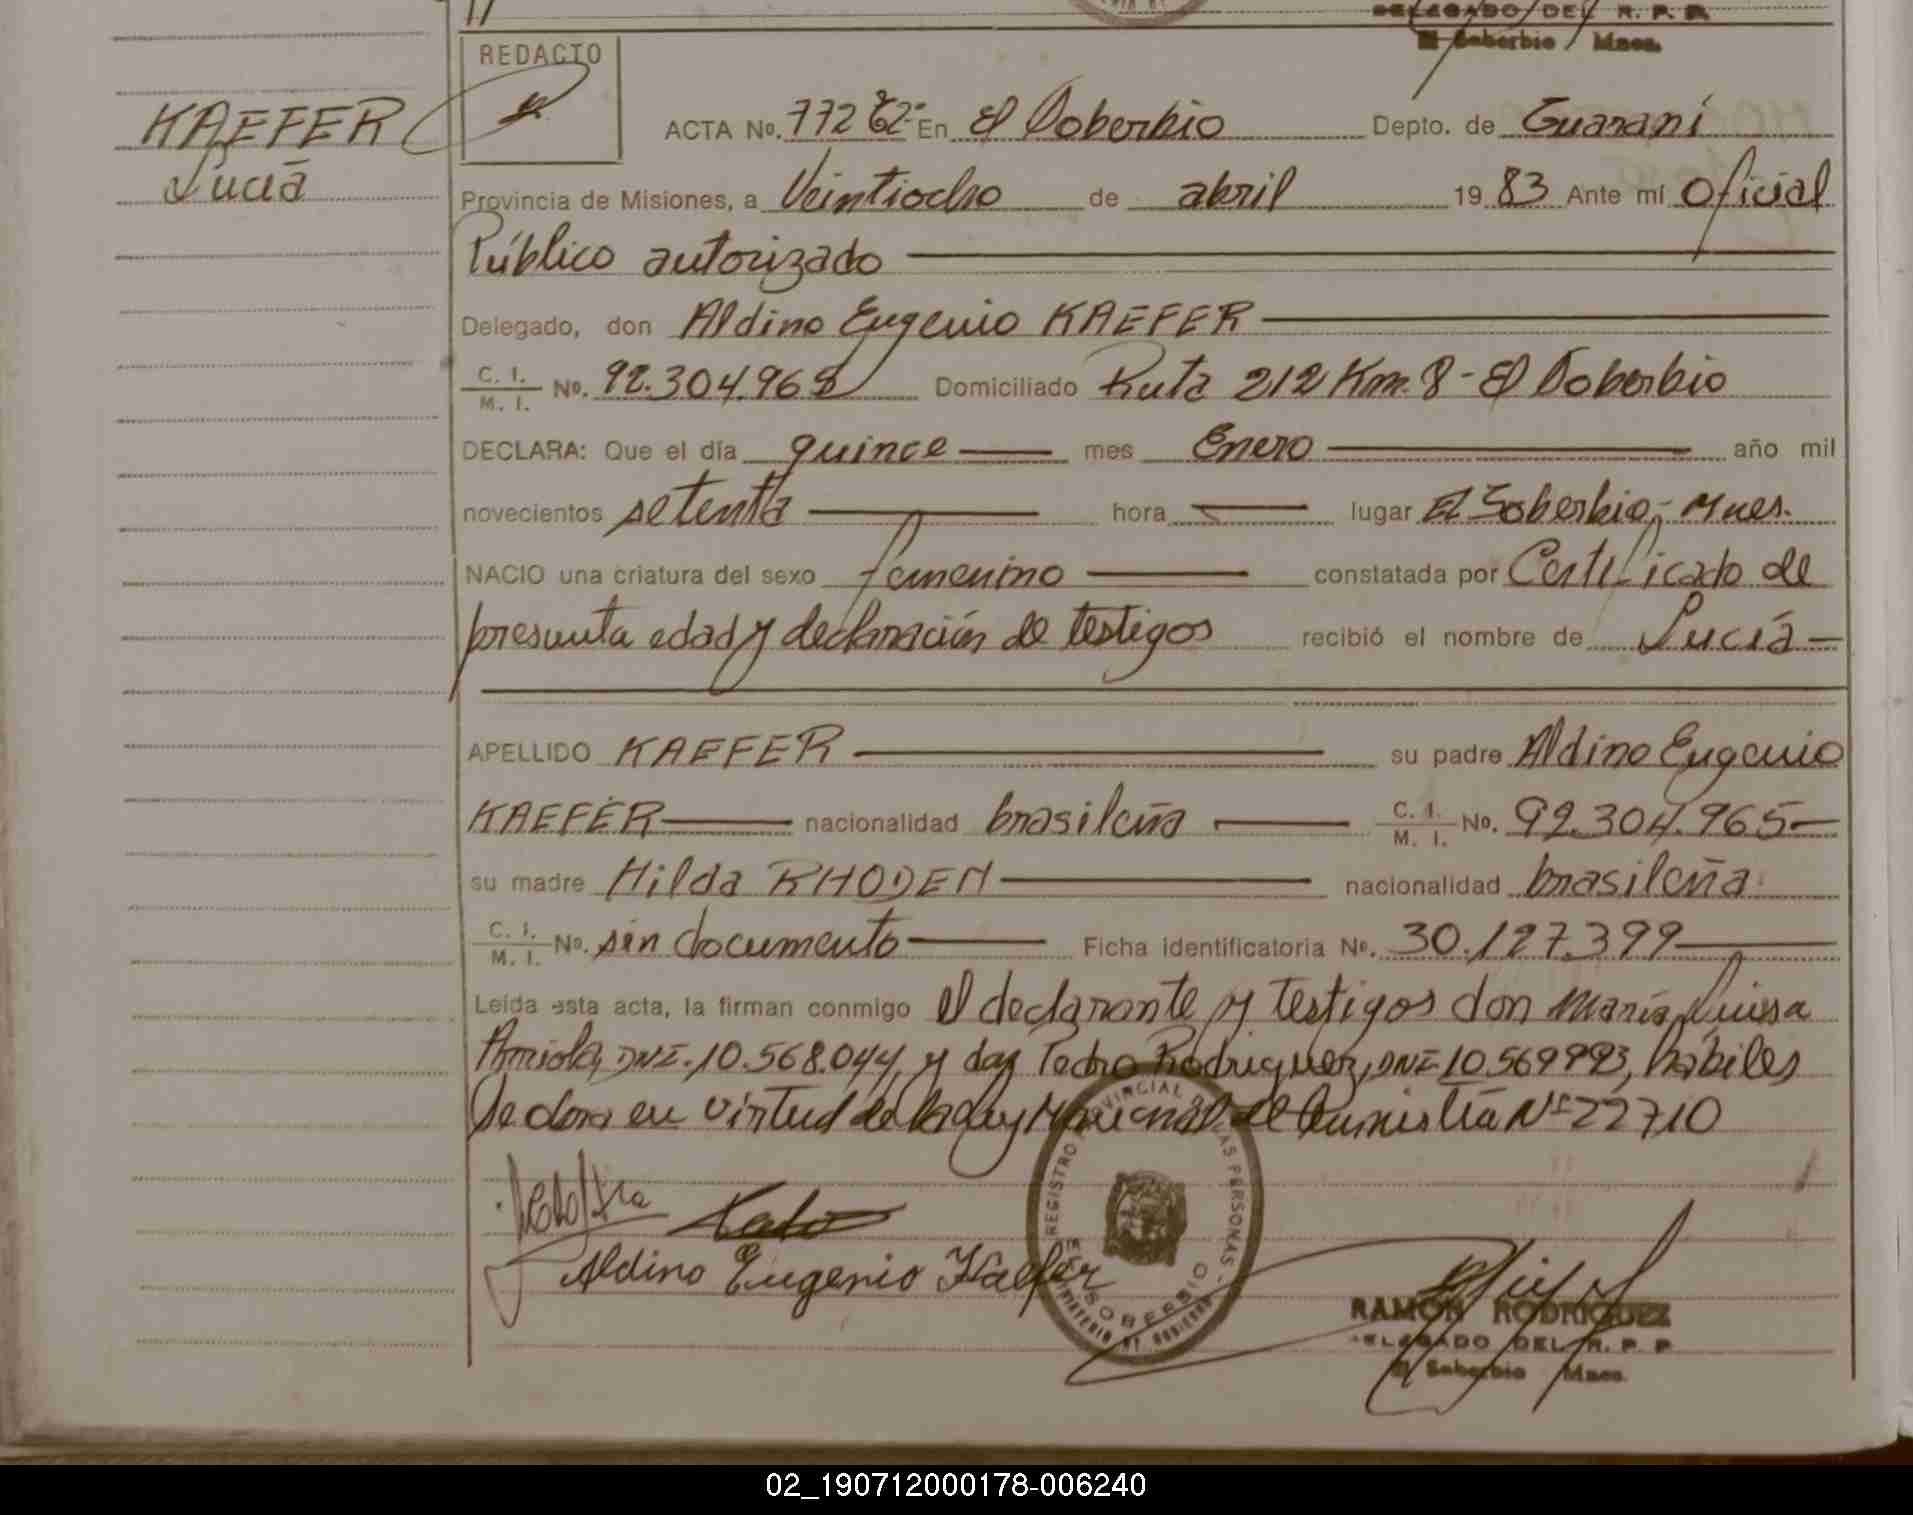 DELEGADO DEL R. P. P.
El Soberbio Mnes.
REDACTO
KAEFER
Lucía
ACTA No. 772 En El Soberbio Depto. de Guaraní
Provincia de Misiones, a Veintiocho de abril 19 83 Ante mí Oficial
Público autorizado
Delegado, don Aldino Eugenio KAEFER
C. I. / M. I. No. 92.304.965 Domiciliado Ruta 212 Km. 8 - El Soberbio
DECLARA: Que el día quince mes Enero año mil
novecientos setenta hora lugar El Soberbio - Mnes.
NACIO una criatura del sexo femenino constatada por Certificado de
presunta edad y declaración de testigos recibió el nombre de Lucía
APELLIDO KAEFER su padre Aldino Eugenio
KAEFER nacionalidad brasileña C. I. / M. I. No. 92.304.965
su madre Hilda RHODEN nacionalidad brasileña
C. I. / M. I. No. sin documento Ficha identificatoria No. 30.127.399
Leída esta acta, la firman conmigo el declarante y testigos don María Luisa
Arriola, DNI. 10.568.044, y don Pedro Rodriguez, DNI 10.569993, hábiles
Se labra en virtud de la Ley Nacional de Amnistía Nº 22710
Aldino Eugenio Kaefer
REGISTRO PROVINCIAL DE LAS PERSONAS
EL SOBERBIO
MINISTERIO DE GOBIERNO
RAMON RODRIGUEZ
DELEGADO DEL R. P. P
El Soberbio Mnes.
02_190712000178-006240